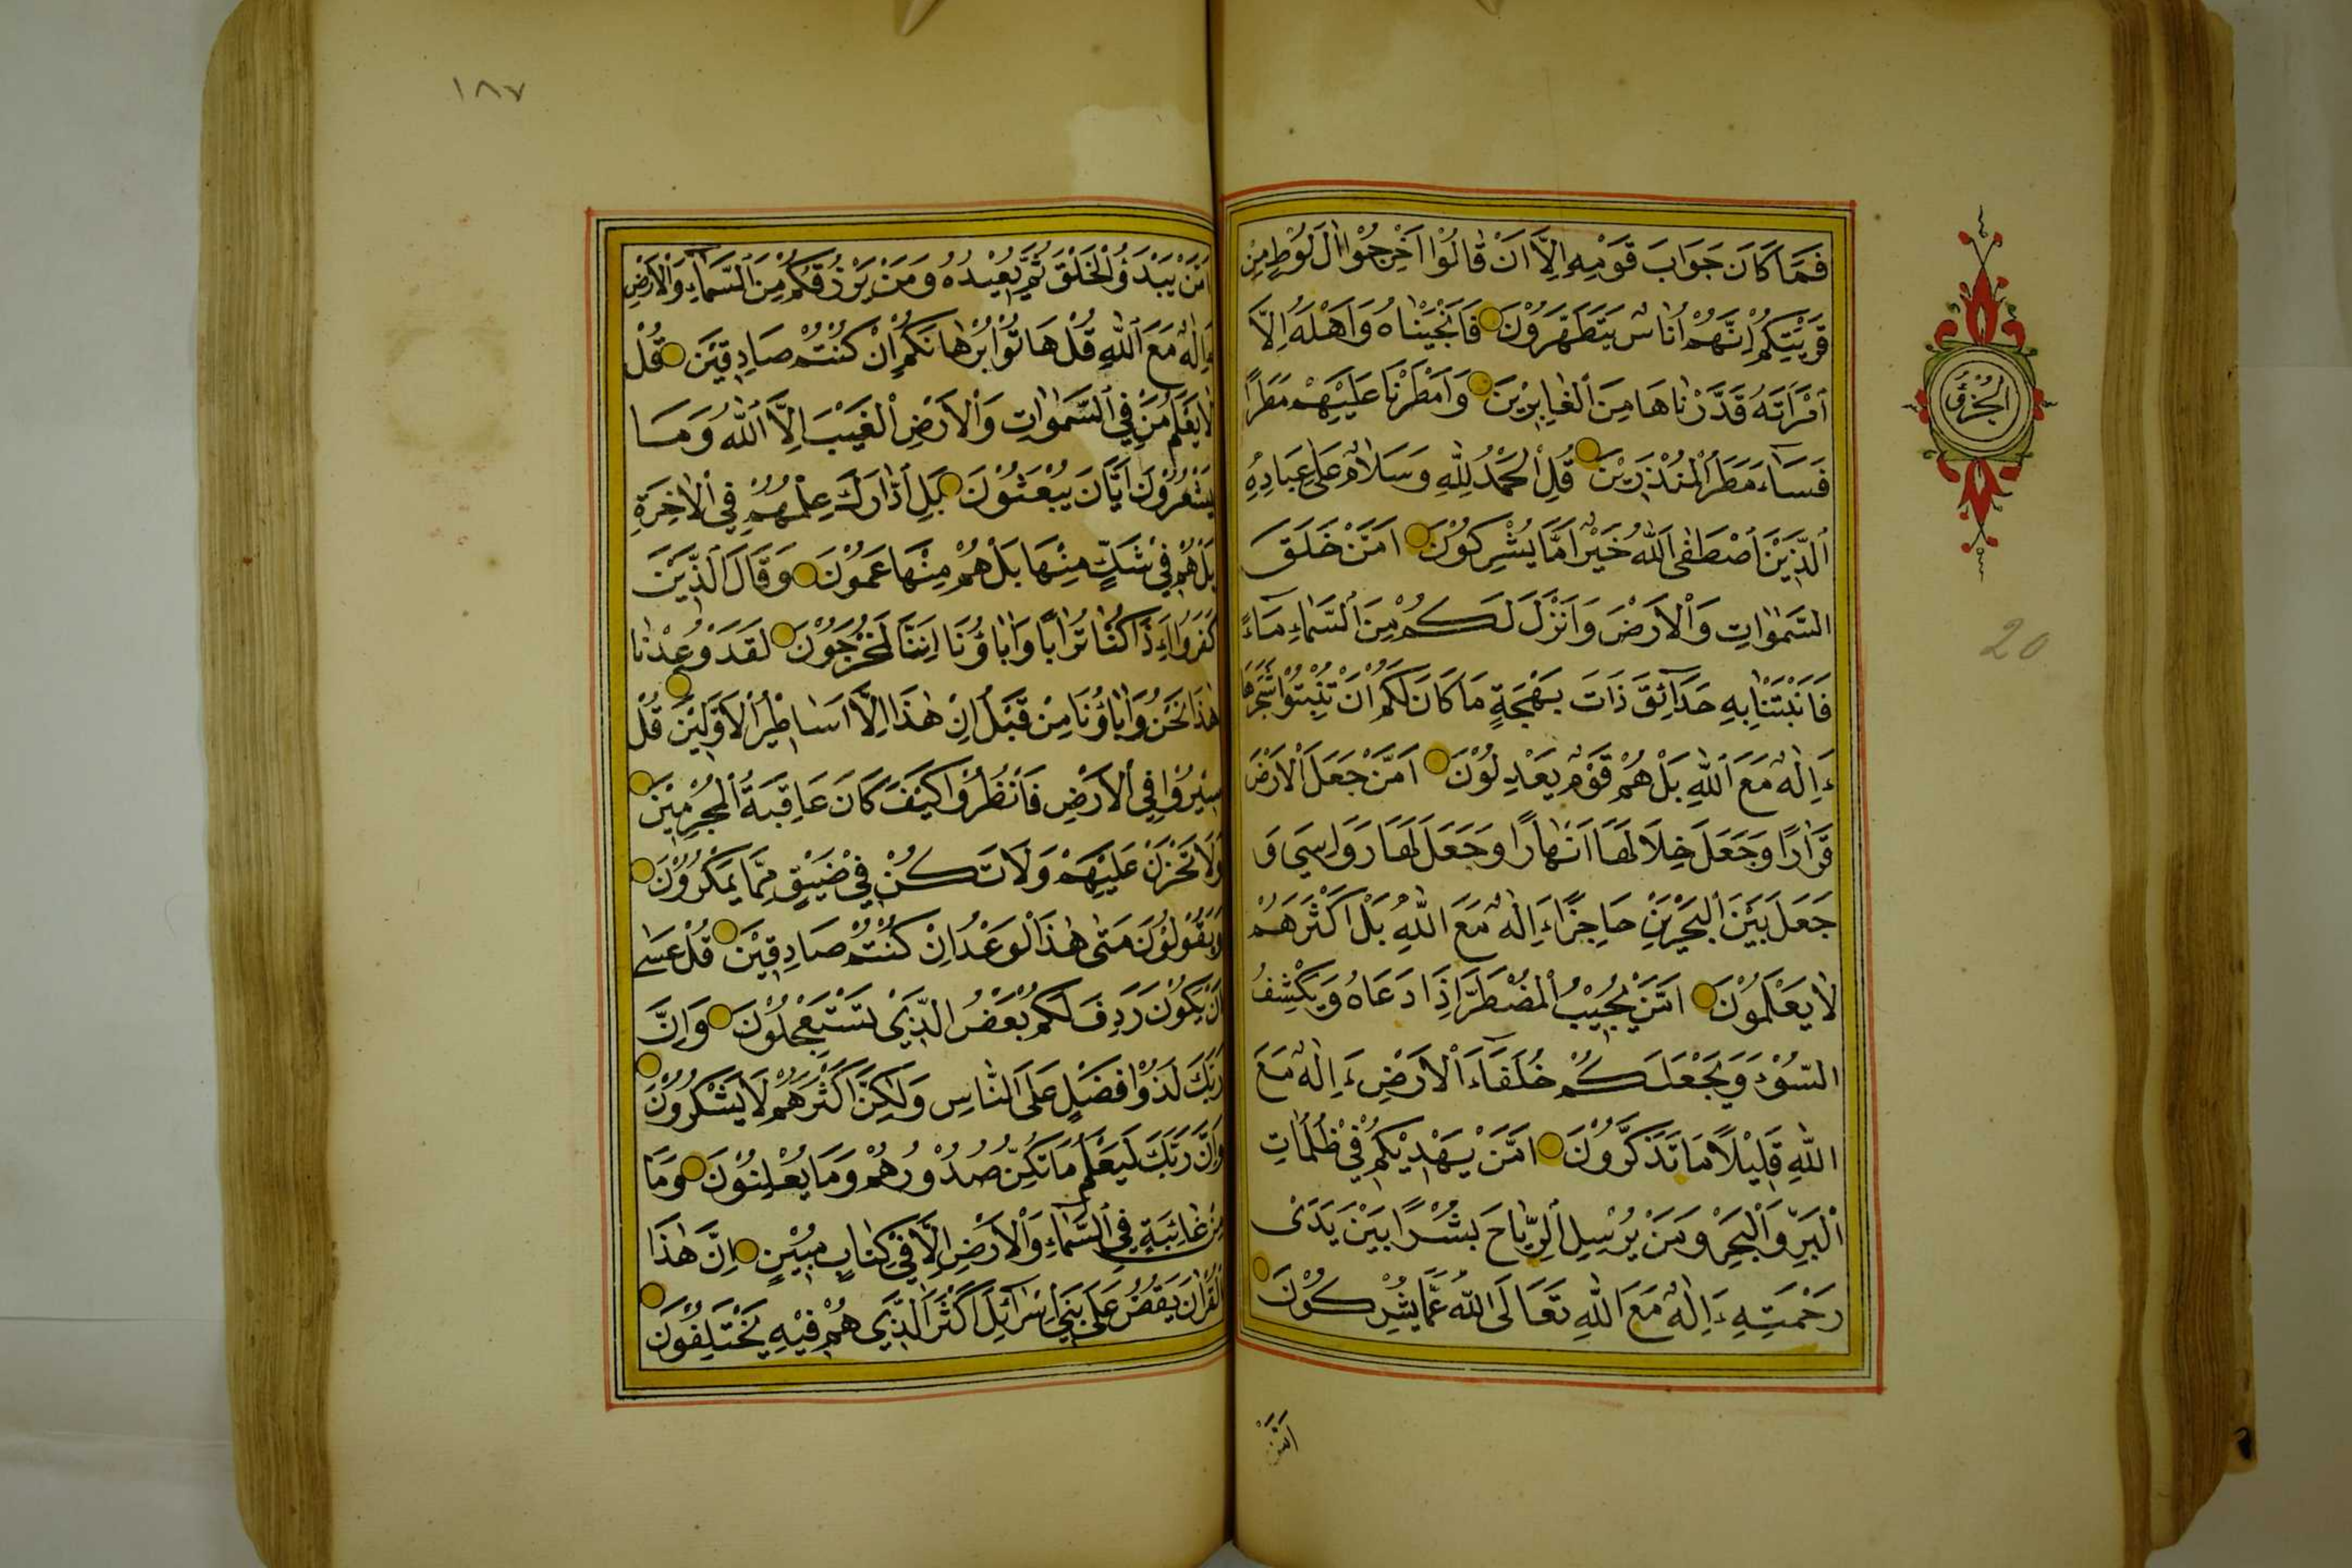 فَمَا كَانَ جَوَابَ قَوْمِهِ اِلَّا اَنْ قَالُوْا اَخْرِجُوْا اٰلَ لُوْطٍ مِنْ
قَرْيَتِكُمْ اِنَّهُمْ اُنَاسٌ يَتَطَهَّرُوْنَ فَاَنْجَيْنَاهُ وَاَهْلَهُ اِلَّا
امْرَاَتَهُ قَدَّرْنَاهَا مِنَ الْغَابِرِيْنَ وَاَمْطَرْنَا عَلَيْهِمْ مَطَرًا
فَسَاۤءَ مَطَرُ الْمُنْذَرِيْنَ قُلِ الْحَمْدُ لِلّٰهِ وَسَلَامٌ عَلٰى عِبَادِهِ
الَّذِيْنَ اصْطَفٰى اَللّٰهُ خَيْرٌ اَمَّا يُشْرِكُوْنَ اَمَّنْ خَلَقَ
السَّمٰوَاتِ وَالْاَرْضَ وَاَنْزَلَ لَكُمْ مِنَ السَّمَاۤءِ مَاۤءً
فَاَنْبَتْنَا بِهِ حَدَاۤئِقَ ذَاتَ بَهْجَةٍ مَا كَانَ لَكُمْ اَنْ تُنْبِتُوْا شَجَرَهَا
ءَاِلٰهٌ مَعَ اللّٰهِ بَلْ هُمْ قَوْمٌ يَعْدِلُوْنَ اَمَّنْ جَعَلَ الْاَرْضَ
قَرَارًا وَجَعَلَ خِلَالَهَا اَنْهَارًا وَجَعَلَ لَهَا رَوَاسِيَ وَ
جَعَلَ بَيْنَ الْبَحْرَيْنِ حَاجِزًا ءَاِلٰهٌ مَعَ اللّٰهِ بَلْ اَكْثَرُهُمْ
لَا يَعْلَمُوْنَ اَمَّنْ يُجِيْبُ الْمُضْطَرَّ اِذَا دَعَاهُ وَيَكْشِفُ
السُّوْءَ وَيَجْعَلُكُمْ خُلَفَاۤءَ الْاَرْضِ ءَاِلٰهٌ مَعَ
اللّٰهِ قَلِيْلًا مَا تَذَكَّرُوْنَ اَمَّنْ يَهْدِيْكُمْ فِيْ ظُلُمَاتِ
الْبَرِّ وَالْبَحْرِ وَمَنْ يُرْسِلُ الرِّيَاحَ بُشْرًا بَيْنَ يَدَيْ
رَحْمَتِهِ ءَاِلٰهٌ مَعَ اللّٰهِ تَعَالَى اللّٰهُ عَمَّا يُشْرِكُوْنَ
اَمَّنْ
الجزؤ
20
١٨٧
اَمَّنْ يَبْدَؤُ الْخَلْقَ ثُمَّ يُعِيْدُهُ وَمَنْ يَرْزُقُكُمْ مِنَ السَّمَاۤءِ وَالْاَرْضِ
ءَاِلٰهٌ مَعَ اللّٰهِ قُلْ هَاتُوْا بُرْهَانَكُمْ اِنْ كُنْتُمْ صَادِقِيْنَ قُلْ
لَا يَعْلَمُ مَنْ فِي السَّمٰوَاتِ وَالْاَرْضِ الْغَيْبَ اِلَّا اللّٰهُ وَمَا
يَشْعُرُوْنَ اَيَّانَ يُبْعَثُوْنَ بَلِ ادّٰارَكَ عِلْمُهُمْ فِي الْاٰخِرَةِ
بَلْ هُمْ فِيْ شَكٍّ مِنْهَا بَلْ هُمْ مِنْهَا عَمُوْنَ وَقَالَ الَّذِيْنَ
كَفَرُوْا ءَاِذَا كُنَّا تُرَابًا وَاٰبَاؤُنَا اَئِنَّا لَمُخْرَجُوْنَ لَقَدْ وُعِدْنَا
هٰذَا نَحْنُ وَاٰبَاؤُنَا مِنْ قَبْلُ اِنْ هٰذَا اِلَّا اَسَاطِيْرُ الْاَوَّلِيْنَ قُلْ
سِيْرُوْا فِي الْاَرْضِ فَانْظُرُوْا كَيْفَ كَانَ عَاقِبَةُ الْمُجْرِمِيْنَ
وَلَا تَحْزَنْ عَلَيْهِمْ وَلَا تَكُنْ فِيْ ضَيْقٍ مِمَّا يَمْكُرُوْنَ
وَيَقُوْلُوْنَ مَتٰى هٰذَا الْوَعْدُ اِنْ كُنْتُمْ صَادِقِيْنَ قُلْ عَسٰى
اَنْ يَكُوْنَ رَدِفَ لَكُمْ بَعْضُ الَّذِيْ تَسْتَعْجِلُوْنَ وَاِنَّ
رَبَّكَ لَذُوْا فَضْلٍ عَلَى النَّاسِ وَلٰكِنَّ اَكْثَرَهُمْ لَا يَشْكُرُوْنَ
وَاِنَّ رَبَّكَ لَيَعْلَمُ مَا تُكِنُّ صُدُوْرُهُمْ وَمَا يُعْلِنُوْنَ وَمَا
مِنْ غَائِبَةٍ فِي السَّمَاۤءِ وَالْاَرْضِ اِلَّا فِيْ كِتَابٍ مُبِيْنٍ اِنَّ هٰذَا
الْقُرْاٰنَ يَقُصُّ عَلٰى بَنِيْ اِسْرَاۤئِلَ اَكْثَرَ الَّذِيْ هُمْ فِيْهِ يَخْتَلِفُوْنَ